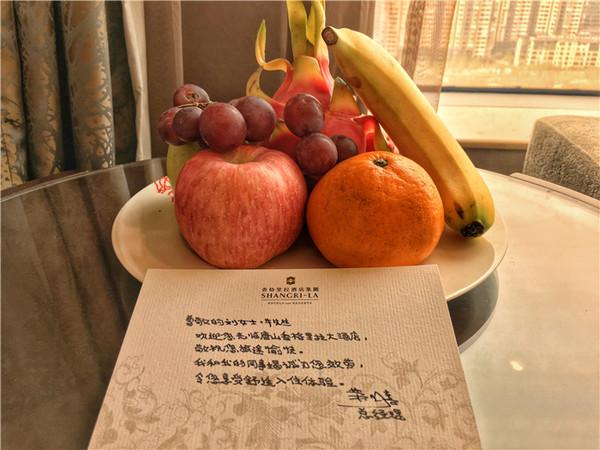 香格里拉酒店集團
SHANGRI-LA
HOTELS and RESORTS
尊敬的刘女士·
欢迎您光临唐山香格里拉大酒店，
敬祝您旅途愉快。
我和我的同事竭诚为您效劳，
令您享受舒适入住体验。
总经理